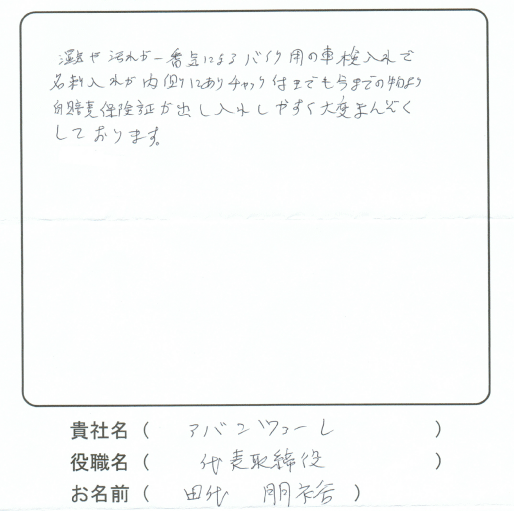 湿気や汚れが一番気になるバイク用の車検入れで
名刺入れが内側にありチャック付きでも今までの物より
自賠責保険証が出し入れしやすく大変まんぞく
しております。
貴社名（ アバンツァーレ ）
役職名（ 代表取締役 ）
お名前（ 田代 ）